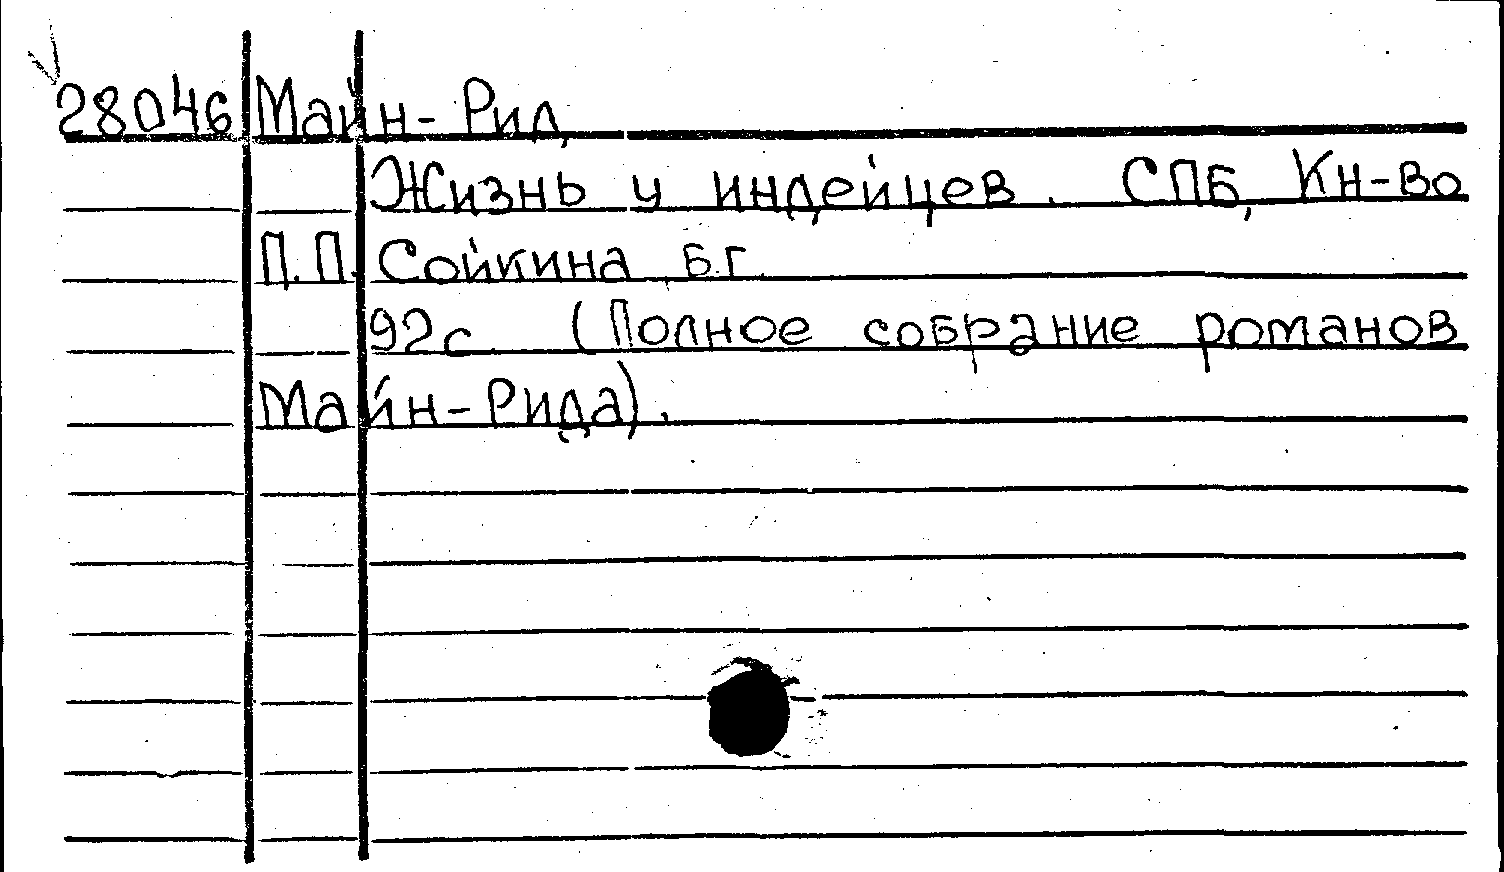 28046 Майн-Рид
Жизнь у индейцев. СПБ, Кн-во
П.П. Сойкина Б.г.
92с. (Полное собрание романов
Майн-Рида).